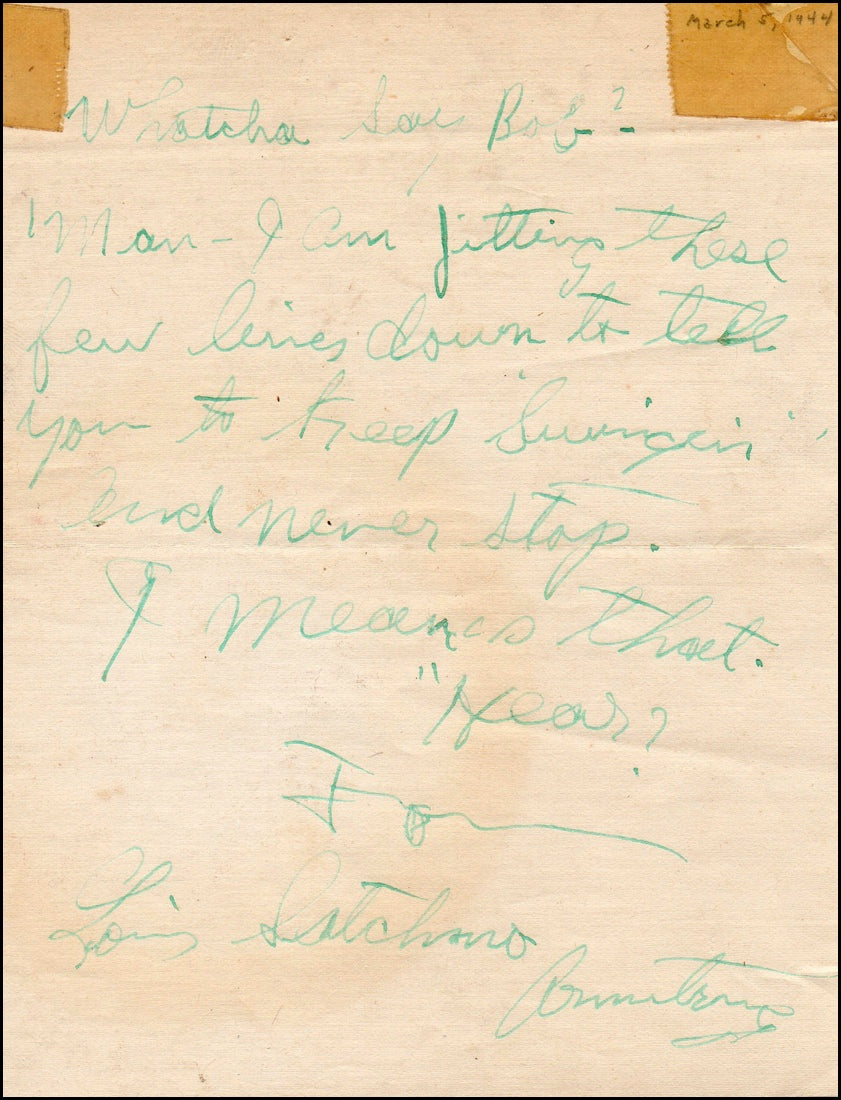 March 5, 1944
Whatcha Say Bob?
'Man - I am jitting these
few lines down to tell
you to keep 'Swingin'
and never stop.
I means that.
"Hear?
From
Louis Satchmo
Armstrong